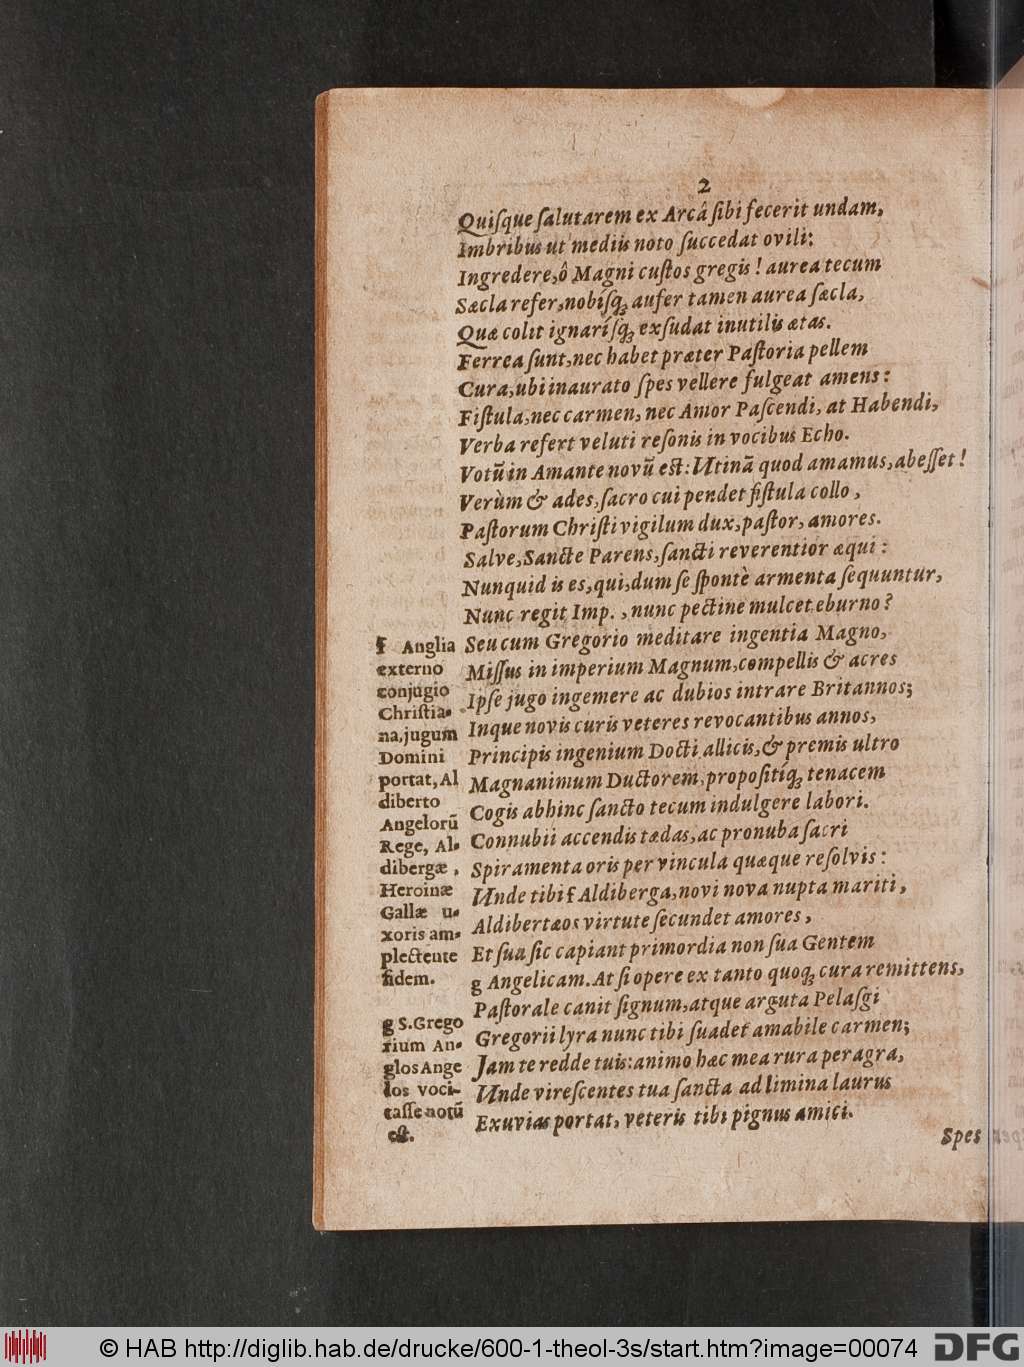 2
Quiſque ſalutarem ex Arcâ ſibi fecerit undam,
Imbribus ut mediis noto ſuccedat ovili:
Ingredere, ô Magni cuſtos gregis! aurea tecum
Sæcla refer, nobíſq; aufer tamen aurea ſæcla,
Quæ colit ignaríſq; exſudat inutilis ætas.
Ferrea ſunt, nec habet præter Paſtoria pellem
Cura, ubi inaurato ſpes vellere fulgeat amens:
Fiſtula, nec carmen, nec Amor Paſcendi, at Habendi,
Verba refert veluti reſonis in vocibus Echo.
Votũ in Amante novũ eſt: Utinã quod amamus, abeſſet!
Verùm & ades, ſacro cui pendet fiſtula collo,
Paſtorum Chriſti vigilum dux, paſtor, amores.
Salve, Sancte Parens, ſancti reverentior æqui:
Nunquid is es, qui, dum ſe ſpontè armenta ſequuntur,
Nunc regit Imp., nunc pectine mulcet eburno?
Seu cum Gregorio meditare ingentia Magno,
Miſſus in imperium Magnum, compellis & acres
Ipſe jugo ingemere ac dubios intrare Britannos;
Inque novis curis veteres revocantibus annos,
Principis ingenium Docti allicis, & premis ultro
Magnanimum Ductorem, propoſitíq; tenacem
Cogis abhinc ſancto tecum indulgere labori.
Connubii accendis tædas, ac pronuba ſacri
Spiramenta oris per vincula quæque reſolvis:
Unde tibi f Aldiberga, novi nova nupta mariti,
Aldibertæos virtute ſecundet amores,
Et ſua ſic capiant primordia non ſua Gentem
g Angelicam. At ſi opere ex tanto quoq; cura remittens,
Paſtorale canit ſignum, atque arguta Pelaſgi
Gregorii lyra nunc tibi ſuadet amabile carmen;
Jam te redde tuis: animo hæc mea rura peragra,
Unde vireſcentes tua ſancta ad limina laurus
Exuvias portat, veteris tibi pignus amici.
Spes
f Anglia
externo
conjugio
Chriſtia-
na, jugum
Domini
portat, Al
diberto
Angelorũ
Rege, Al-
dibergæ,
Heroinæ
Gallæ u-
xoris am-
plectente
fidem.
g S. Grego
rium An-
glos Ange
los voci-
taſſe notũ
eſt.
© HAB http://diglib.hab.de/drucke/600-1-theol-3s/start.htm?image=00074
DFG